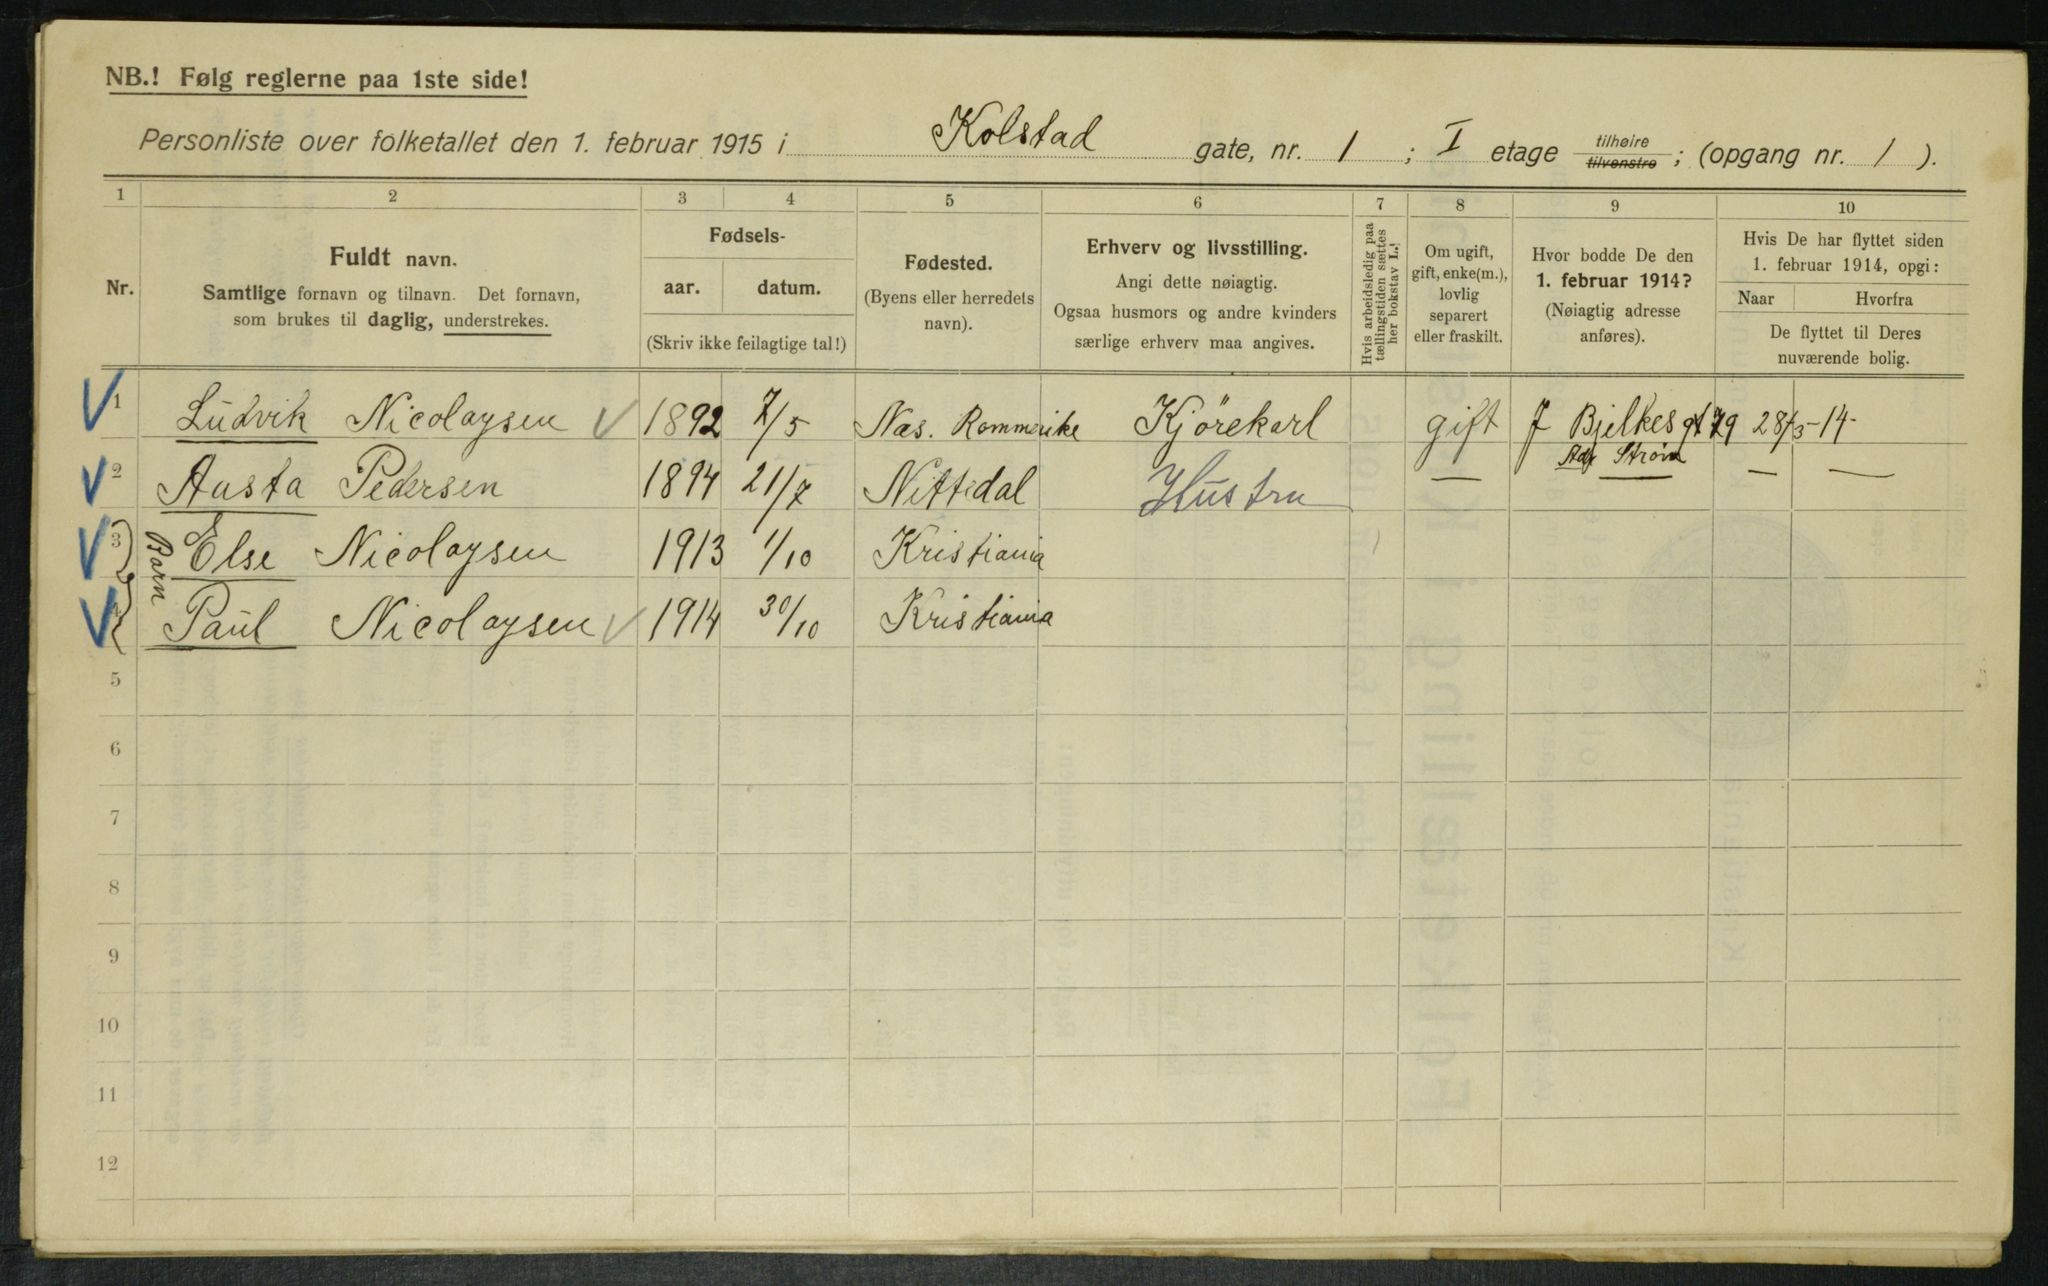 NB.! Følg reglerne paa 1ste side!
Personliste over folketallet den 1. februar 1915 i Kolstad gate, nr. 1 ; I etage tilhøire tilvenstre ; (opgang nr. 1 ).
1 2 3 4 5 6 7 8 9 10
Nr.
Fuldt navn.
Samtlige fornavn og tilnavn. Det fornavn,
som brukes til daglig, understrekes.
Fødsels-
aar. datum.
(Skriv ikke feilagtige tal!)
Fødested.
(Byens eller herredets
navn).
Erhverv og livsstilling.
Angi dette nøiagtig.
Ogsaa husmors og andre kvinders
særlige erhverv maa angives.
Hvis arbeidsledig paa
tællingstiden sættes
her bokstav L.!
Om ugift,
gift, enke(m.),
lovlig
separert
eller fraskilt.
Hvor bodde De den
1. februar 1914?
(Nøiagtig adresse
anføres).
Hvis De har flyttet siden
1. februar 1914, opgi:
Naar Hvorfra
De flyttet til Deres
nuværende bolig.
1 Ludvik Nicolaysen 1892 7/5 Næs. Rommerike Kjörekarl gift J Bjelkes gt 79 28/3-14-
Adr Strøm
2 Aasta Pedersen 1894 21/7 Nittedal Hustru — — — —
Barn
3 Else Nicolaysen 1913 1/10 Kristiania
4 Paul Nicolaysen 1914 30/10 Kristiania
5
6
7
8
9
10
11
12